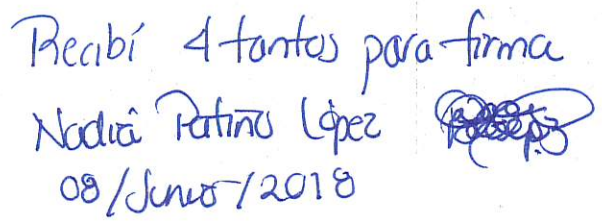 Recibí 4 tantos para firma
Nadia Patiño López
08/Junio/2018